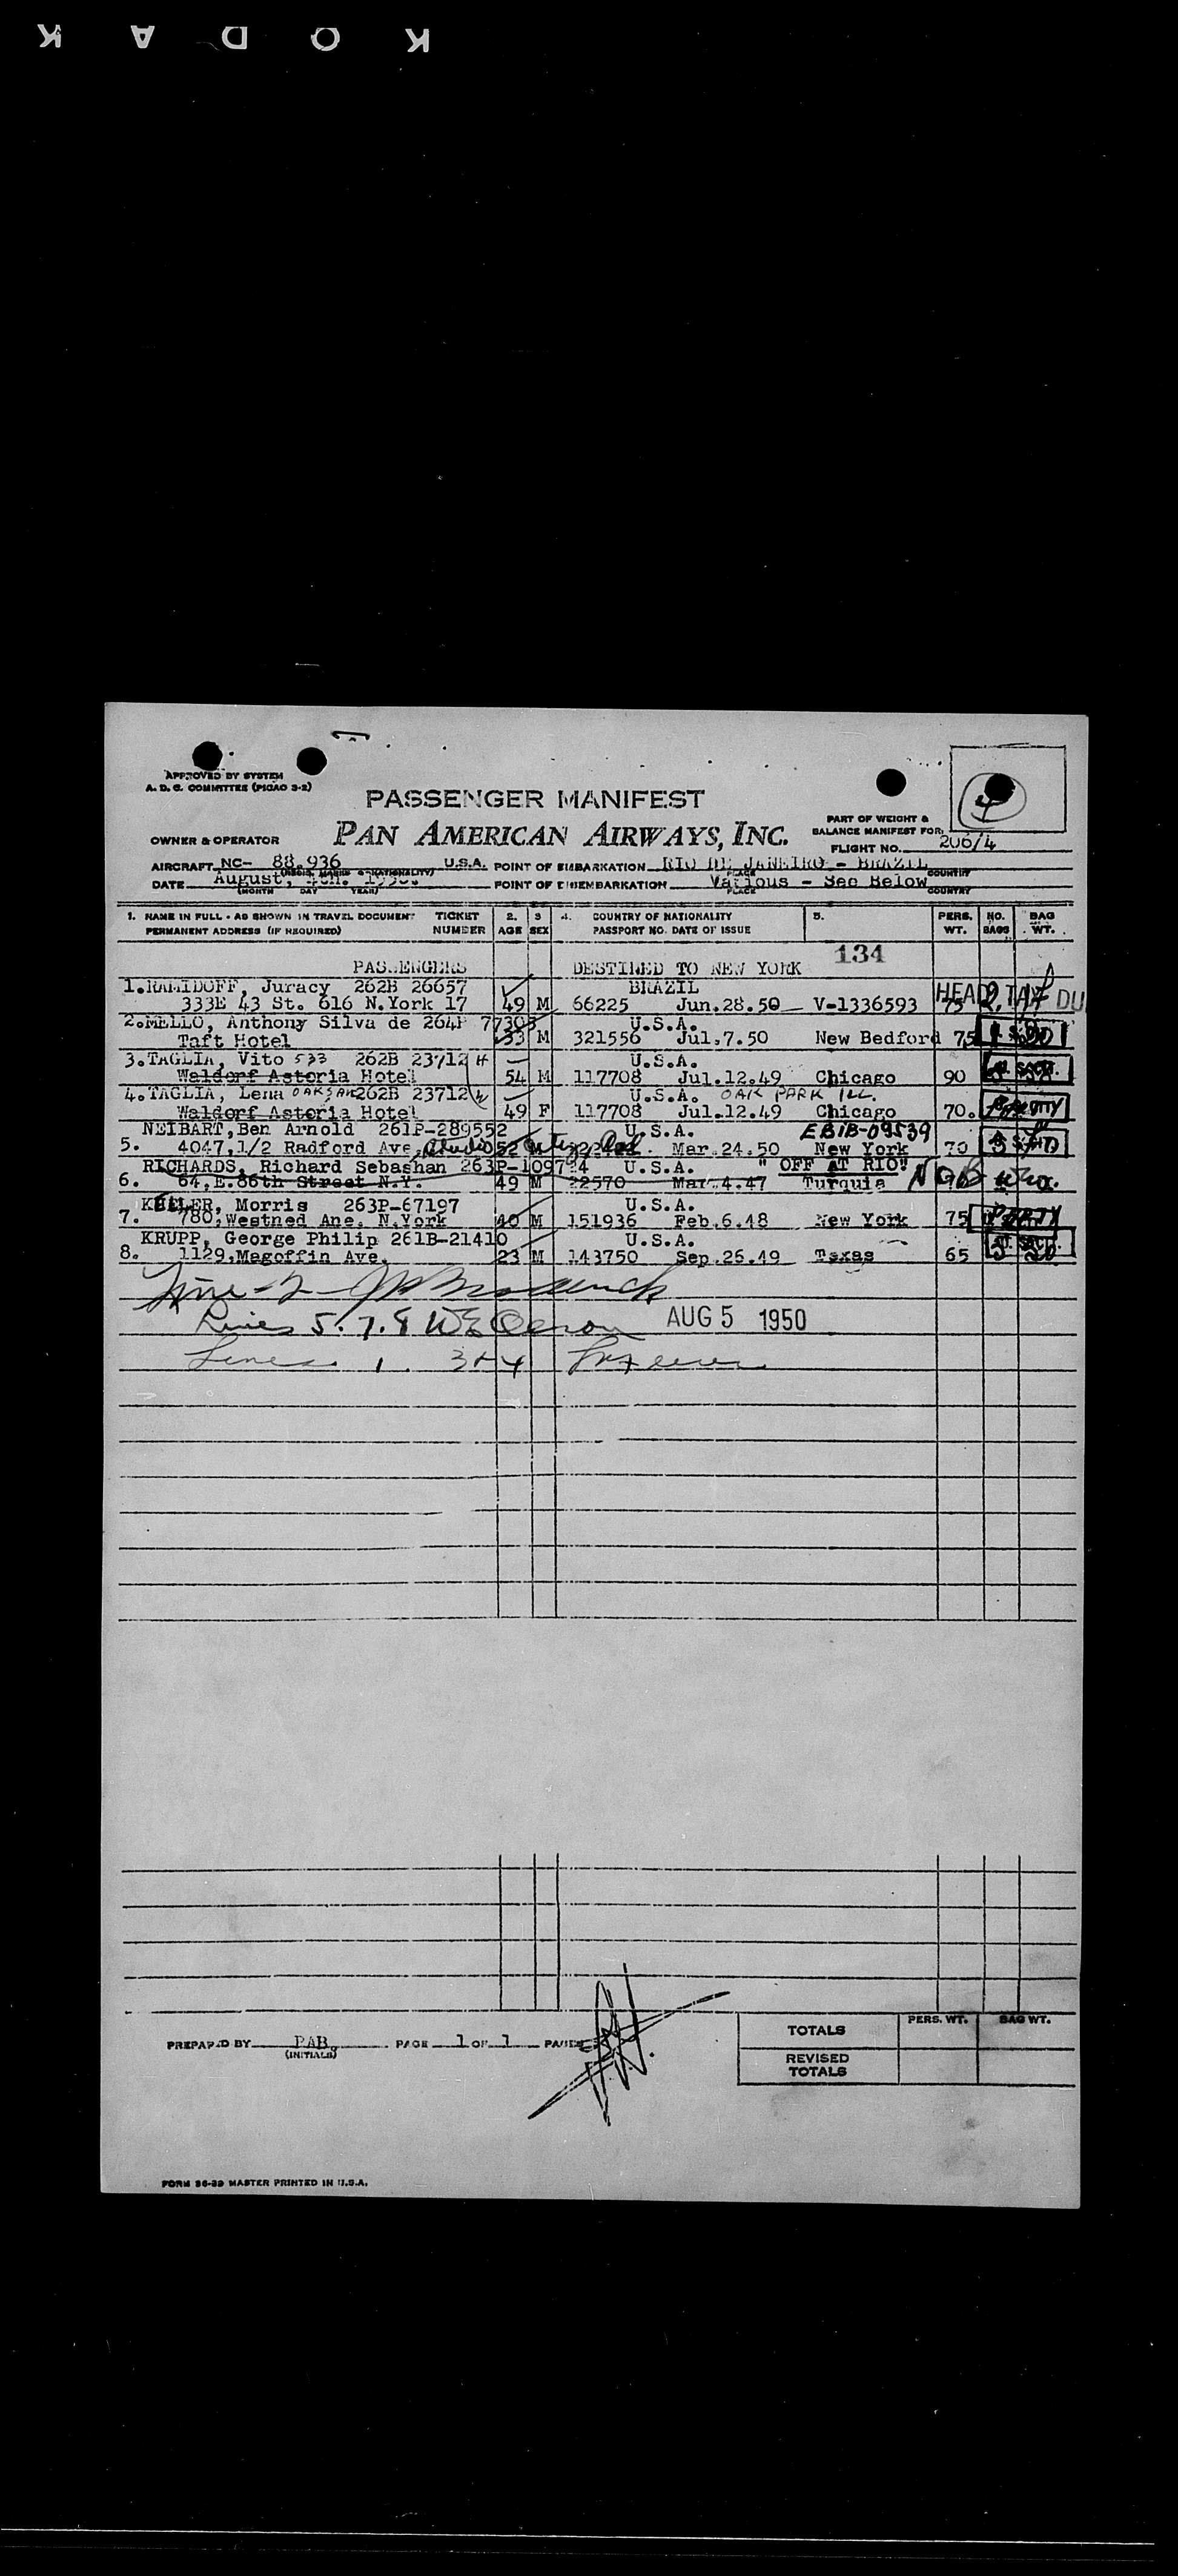 KODAK
APPROVED BY SYSTEM
A. D. C. COMMITTEE (PICAO 3-2)
PASSENGER MANIFEST
PAN AMERICAN AIRWAYS, INC.
OWNER & OPERATOR
PART OF WEIGHT &
BALANCE MANIFEST FOR:
FLIGHT NO. 206/4
AIRCRAFT NC- 88.936 U.S.A. POINT OF EMBARKATION RIO DE JANEIRO - BRAZIL
(REGIS. MARKS & NATIONALITY) PLACE COUNTRY
DATE August, 4th. 1950. POINT OF DISEMBARKATION Various - See Below
(MONTH DAY YEAR) PLACE COUNTRY
1. NAME IN FULL - AS SHOWN IN TRAVEL DOCUMENT TICKET 2. 3 4. COUNTRY OF NATIONALITY 5. PERS. NO. BAG
PERMANENT ADDRESS (IF REQUIRED) NUMBER AGE SEX PASSPORT NO. DATE OF ISSUE WT. BAGS WT.
134
PASSENGERS DESTINED TO NEW YORK
1. RAMIDOFF, Juracy 262B 26657 BRAZIL HEAD TAX DU
333E 43 St. 616 N.York 17 49 M 66225 Jun.28.50 V-1336593 75
2. MELLO, Anthony Silva de 264P U.S.A.
Taft Hotel 33 M 321556 Jul.7.50 New Bedford 75
3. TAGLIA, Vito 533 262B 23712 U.S.A.
Waldorf Astoria Hotel 54 M 117708 Jul.12.49 Chicago 90
4. TAGLIA, Lena 262B 23712 U.S.A. OAK PARK ILL.
Waldorf Astoria Hotel 49 F 117708 Jul.12.49 Chicago 70.
NEIBART, Ben Arnold 261P-289552 U.S.A. EBIB-09539
5. 4047,1/2 Radford Ave, 52 Mar.24.50 New York 70
RICHARDS, Richard Sebashan 263P-109794 U.S.A. " OFF AT RIO"
6. 64,E.86th Street N.Y. 49 M 22570 Mar.4.47 Turquia
KELLER, Morris 263P-67197 U.S.A.
7. 780,Westned Ane. N.York 40 M 151936 Feb.6.48 New York 75
KRUPP, George Philip 261B-21410 U.S.A.
8. 1129,Magoffin Ave. 23 M 143750 Sep.26.49 Texas 65
Line - 2
Lines 5. 7. 8 AUG 5 1950
Lines 1. 3+4
PREPARED BY PAB. PAGE 1 OF 1 PAGES
(INITIALS)
PERS. WT. BAG WT.
TOTALS
REVISED
TOTALS
FORM 36-39 MASTER PRINTED IN U.S.A.